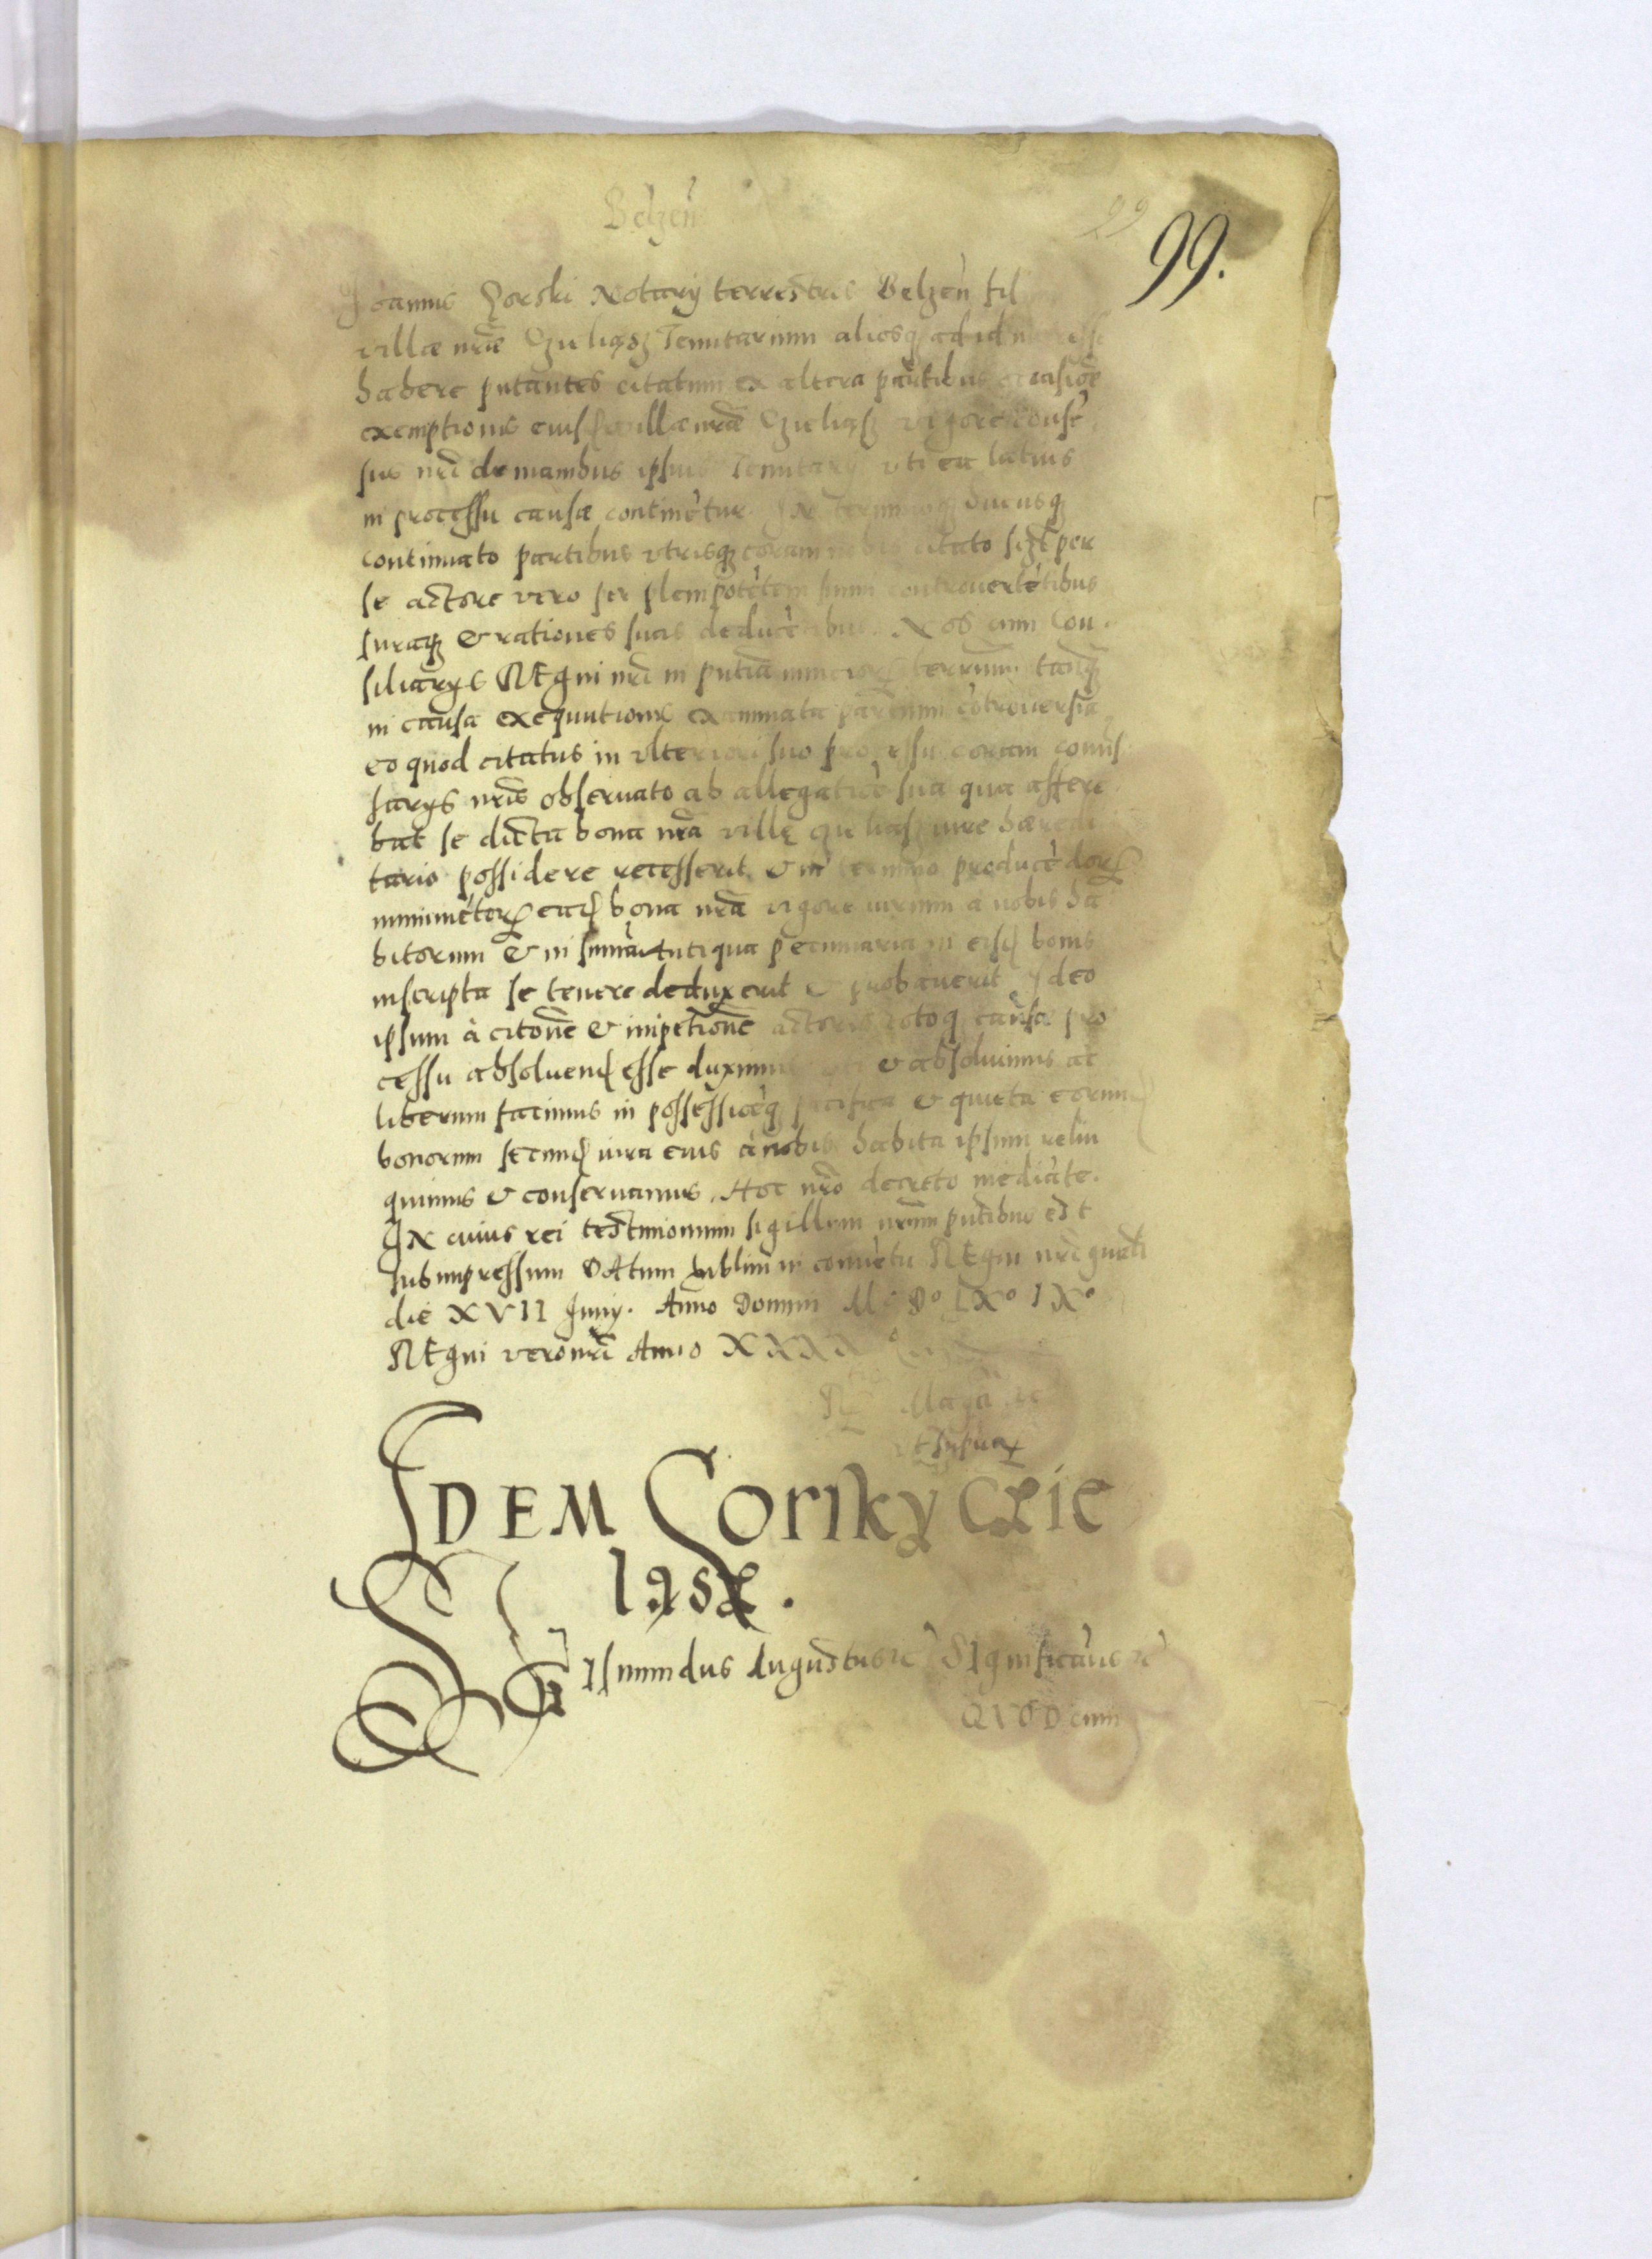 Belzeñ
99
99.
Joannis Gorski Notarij terrestris Belzeñ fil
villæ nr̃æ Czieliąsz Tenutarium aliosq̨ ad id
habere putantes citatum ex altera partibus occasione
exemptionis eiusd villæ nr̃æ Czieliąsz vigore consẽ
sus nr̃i de manibus ipsius Tenutarij vti ea latius
in processu causæ continẽtur IN terminoq̨ hucusq̨
continuato partibus vtrisq̨ coram nobis citato sczt per
se actore vero per plenipotẽtem suum controuertẽtibus
iuraq̨ & rationes suas deducẽtibus. Nos cum Con
siliarys REgni nr̃i in pntia nuncior̃ terrarum tanq̃
in causa exequutionis examinata partium cõtrouersia
eo quod citatus in vlteriori suo processu coram comis
sarys nr̃is obseruato ab allegatiõe sua qua assere
bat se dicta bona nr̃a villę Czieliąsz iure hæredi
tario possidere recesserit & in termino producẽdor̃
munimẽtor̃ ead bona nr̃a vigore iurium a nobis ha
bitorum & in summa antiqua pecuniaria in eisd bonis
inscripta se tenere deduxerit & probauerit Ideo
ipsum à citõne & impetitione actoris totoq̨ causæ pro
cessu absoluend esse duximus & absoluimus ac
liberum facimus in possessiõeq̨ pacifica & quieta eorund
bonorum secund iura eius à nobis habita ipsum relin
quimus & conseruamus. Hoc nr̃o decreto mediãte.
IN cuius rei testimonium sigillum nr̃um pntibus est
subimpressum DAtum Lublini in conuẽtu REgni nr̃i gnali
die XVII Junij. Anno Domini Mº Dº LXº IXº
REgni vero nr̃i Anno XXXX
vt supra
IDEM Gorsky Czie
ląsz.
SIGIsmundus Augustus rc̃ SIgnificamus rc̃
QVOD cum